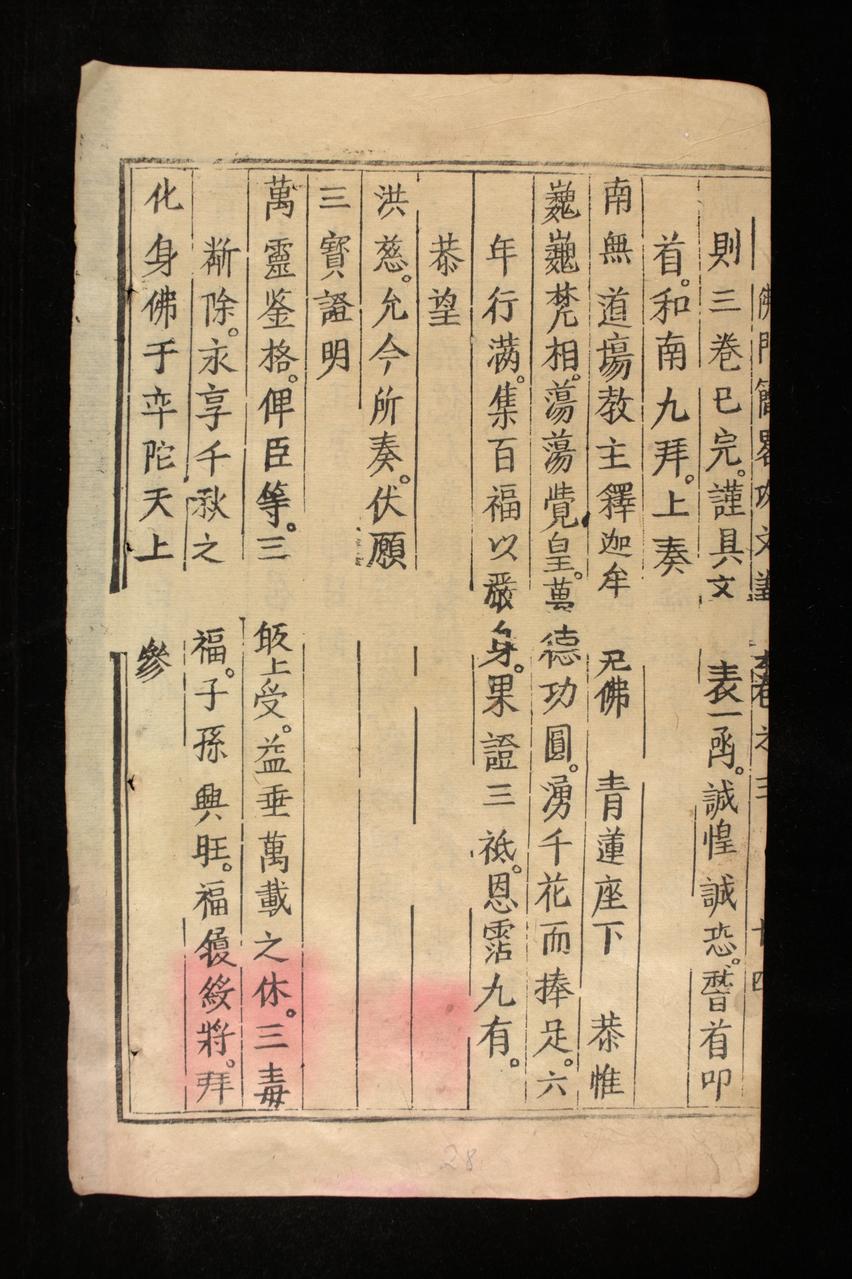 佛門簡畧功文 卷之三 廿四
則三卷已完。謹具文表一函。誠惶誠恐。𥡴首叩
首。和南九拜。上奏
南無道塲教主釋迦牟尼佛 青蓮座下 恭惟
巍巍梵相。蕩蕩覺皇。萬德功圓。湧千花而捧足。六
年行滿。集百福以嚴身。果證三祇。恩霑九有。
恭望
洪慈。允今所奏。伏願
三寶證明
萬靈鉴格。俾臣等。三皈上受。益垂萬載之休。三毒
斷除。永享千秋之福。子孫興旺。福履綏將。拜
化身佛于卒陀天上 參
28